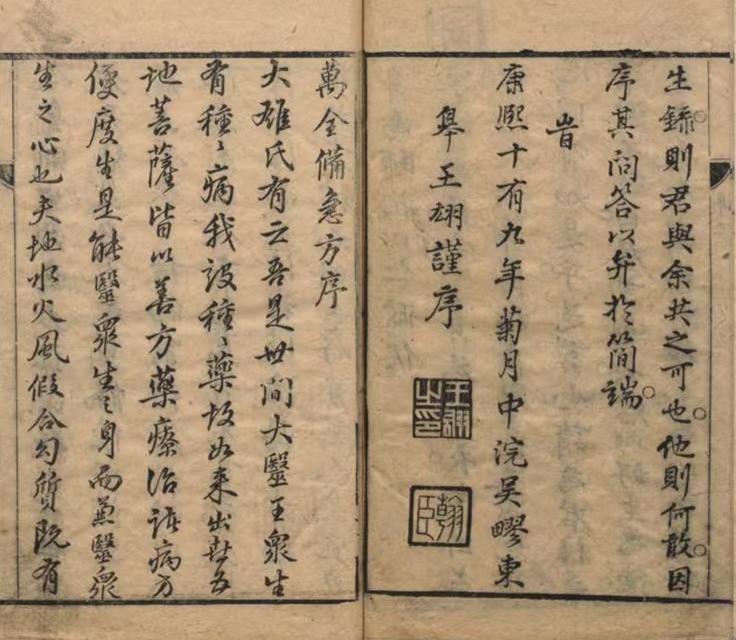 生錄則君與余共之可也他則何敢因
序其問答以弁於簡端
旹
康熙十有九年菊月中浣吴疁東
皋王翃謹序
王翃之印
翰臣
萬全備急方序
大雄氏有云吾是世間大醫王衆生
有種〻病我設種〻藥故如来出世多
地菩薩皆以善方藥療治諸病方
便度生是能醫衆生之身而兼醫衆
生之心也夫地水火風假合勾質既有